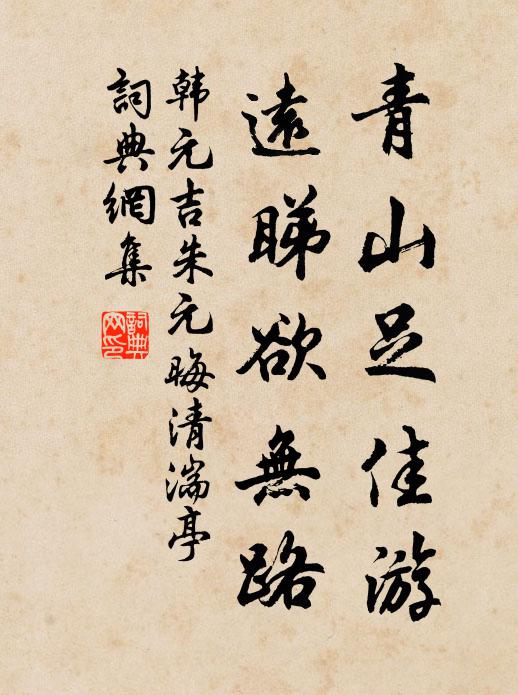 青山足佳游
遠睇欲無路
韩元吉朱元晦清湍亭
詞典網集
詞典
网印